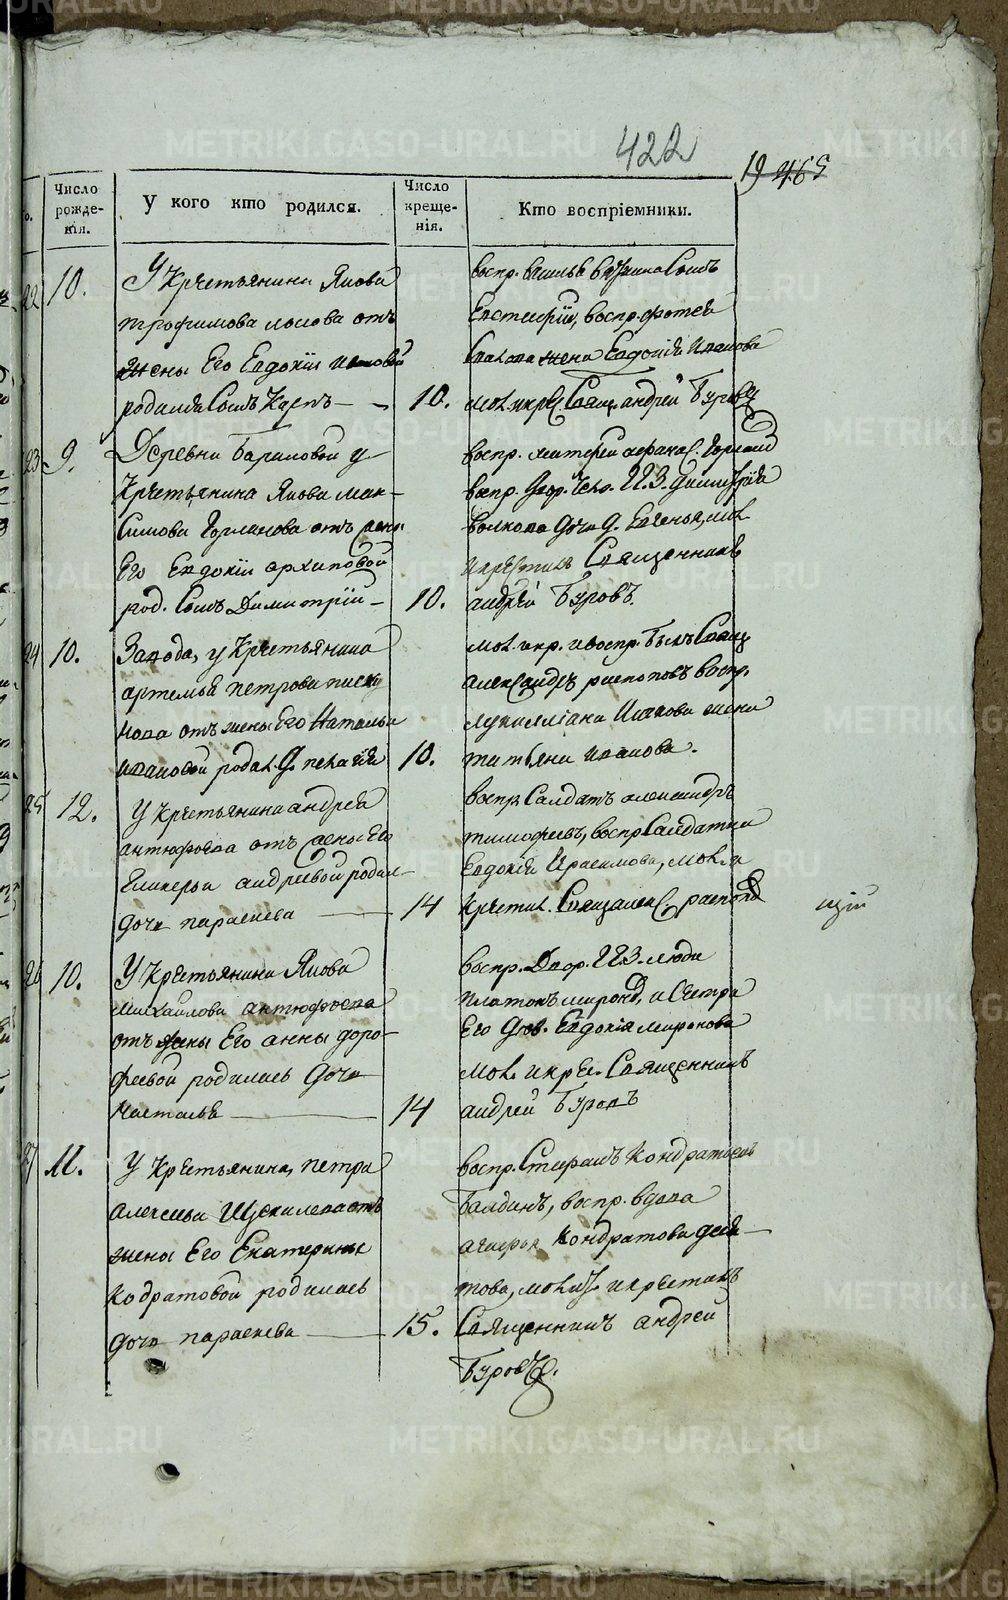 422
19 465
Число рожде-нія.
У кого кто родился.
Число креще-нія.
Кто воспріемники.
22
10.
У Крестьянина Якова
трофимова
отъ
жены Его Евдокіи
родился Сынъ Карпъ —
10.
воспр.
Сынъ
Евстифій, воспр. фотея
жена Евдокія Иванова
мол. и кре. Свящ. андрей Буровъ
23
9.
Деревни Бариловой у
Крестьянина Якова Мак-
симова Горланова отъ жены
Его Евдокіи архиповой
род. Сынъ Димитрій —
10.
воспр.
воспр. Двор. Чело. П.З. Димитрія
волкова дочь д. Евгенья, мол.
и крестилъ Священникъ
андрей Буровъ.
24
10.
Завода, у Крестьянина
артемья петрова
отъ жены Его Натальи
ивановой родил. д. пелагія
10.
мол. и кр. и воспр. былъ Свящ.
александръ распоповъ воспр.
лукилліана Исакова жена
татьяна иванова.
25
12.
У Крестьянина андрея
антюфеева отъ жены Его
Гликерьи андреевой родил-
дочь параскева —
14
воспр. Салдатъ александръ
тимофеевъ, воспр. Салдатка
Евдокія Герасимова, мол. и
Крестил. Свящ. алек. распоповъ
26
10.
У Крестьянина Якова
михайлова антюфеева
отъ жены Его анны доро-
феевой родилась дочь
Наталья —
14
воспр. Двор. П.З. люди
платонъ миронов, и Сестра
Его дев. Евдокія миронова
мол. и кре. Священникъ
андрей Буровъ
27
11.
У Крестьянина, петра
алексеева
отъ
жены Его Екатерины
кодратовой родилась
дочь параскева —
15.
воспр. Стефанъ Кондратьевъ
Балдинъ, воспр. вдова
Кондратова девя-
това, молил. и крестилъ
Священникъ андрей
Буровъ.
METRIKI.GASO-URAL.RU